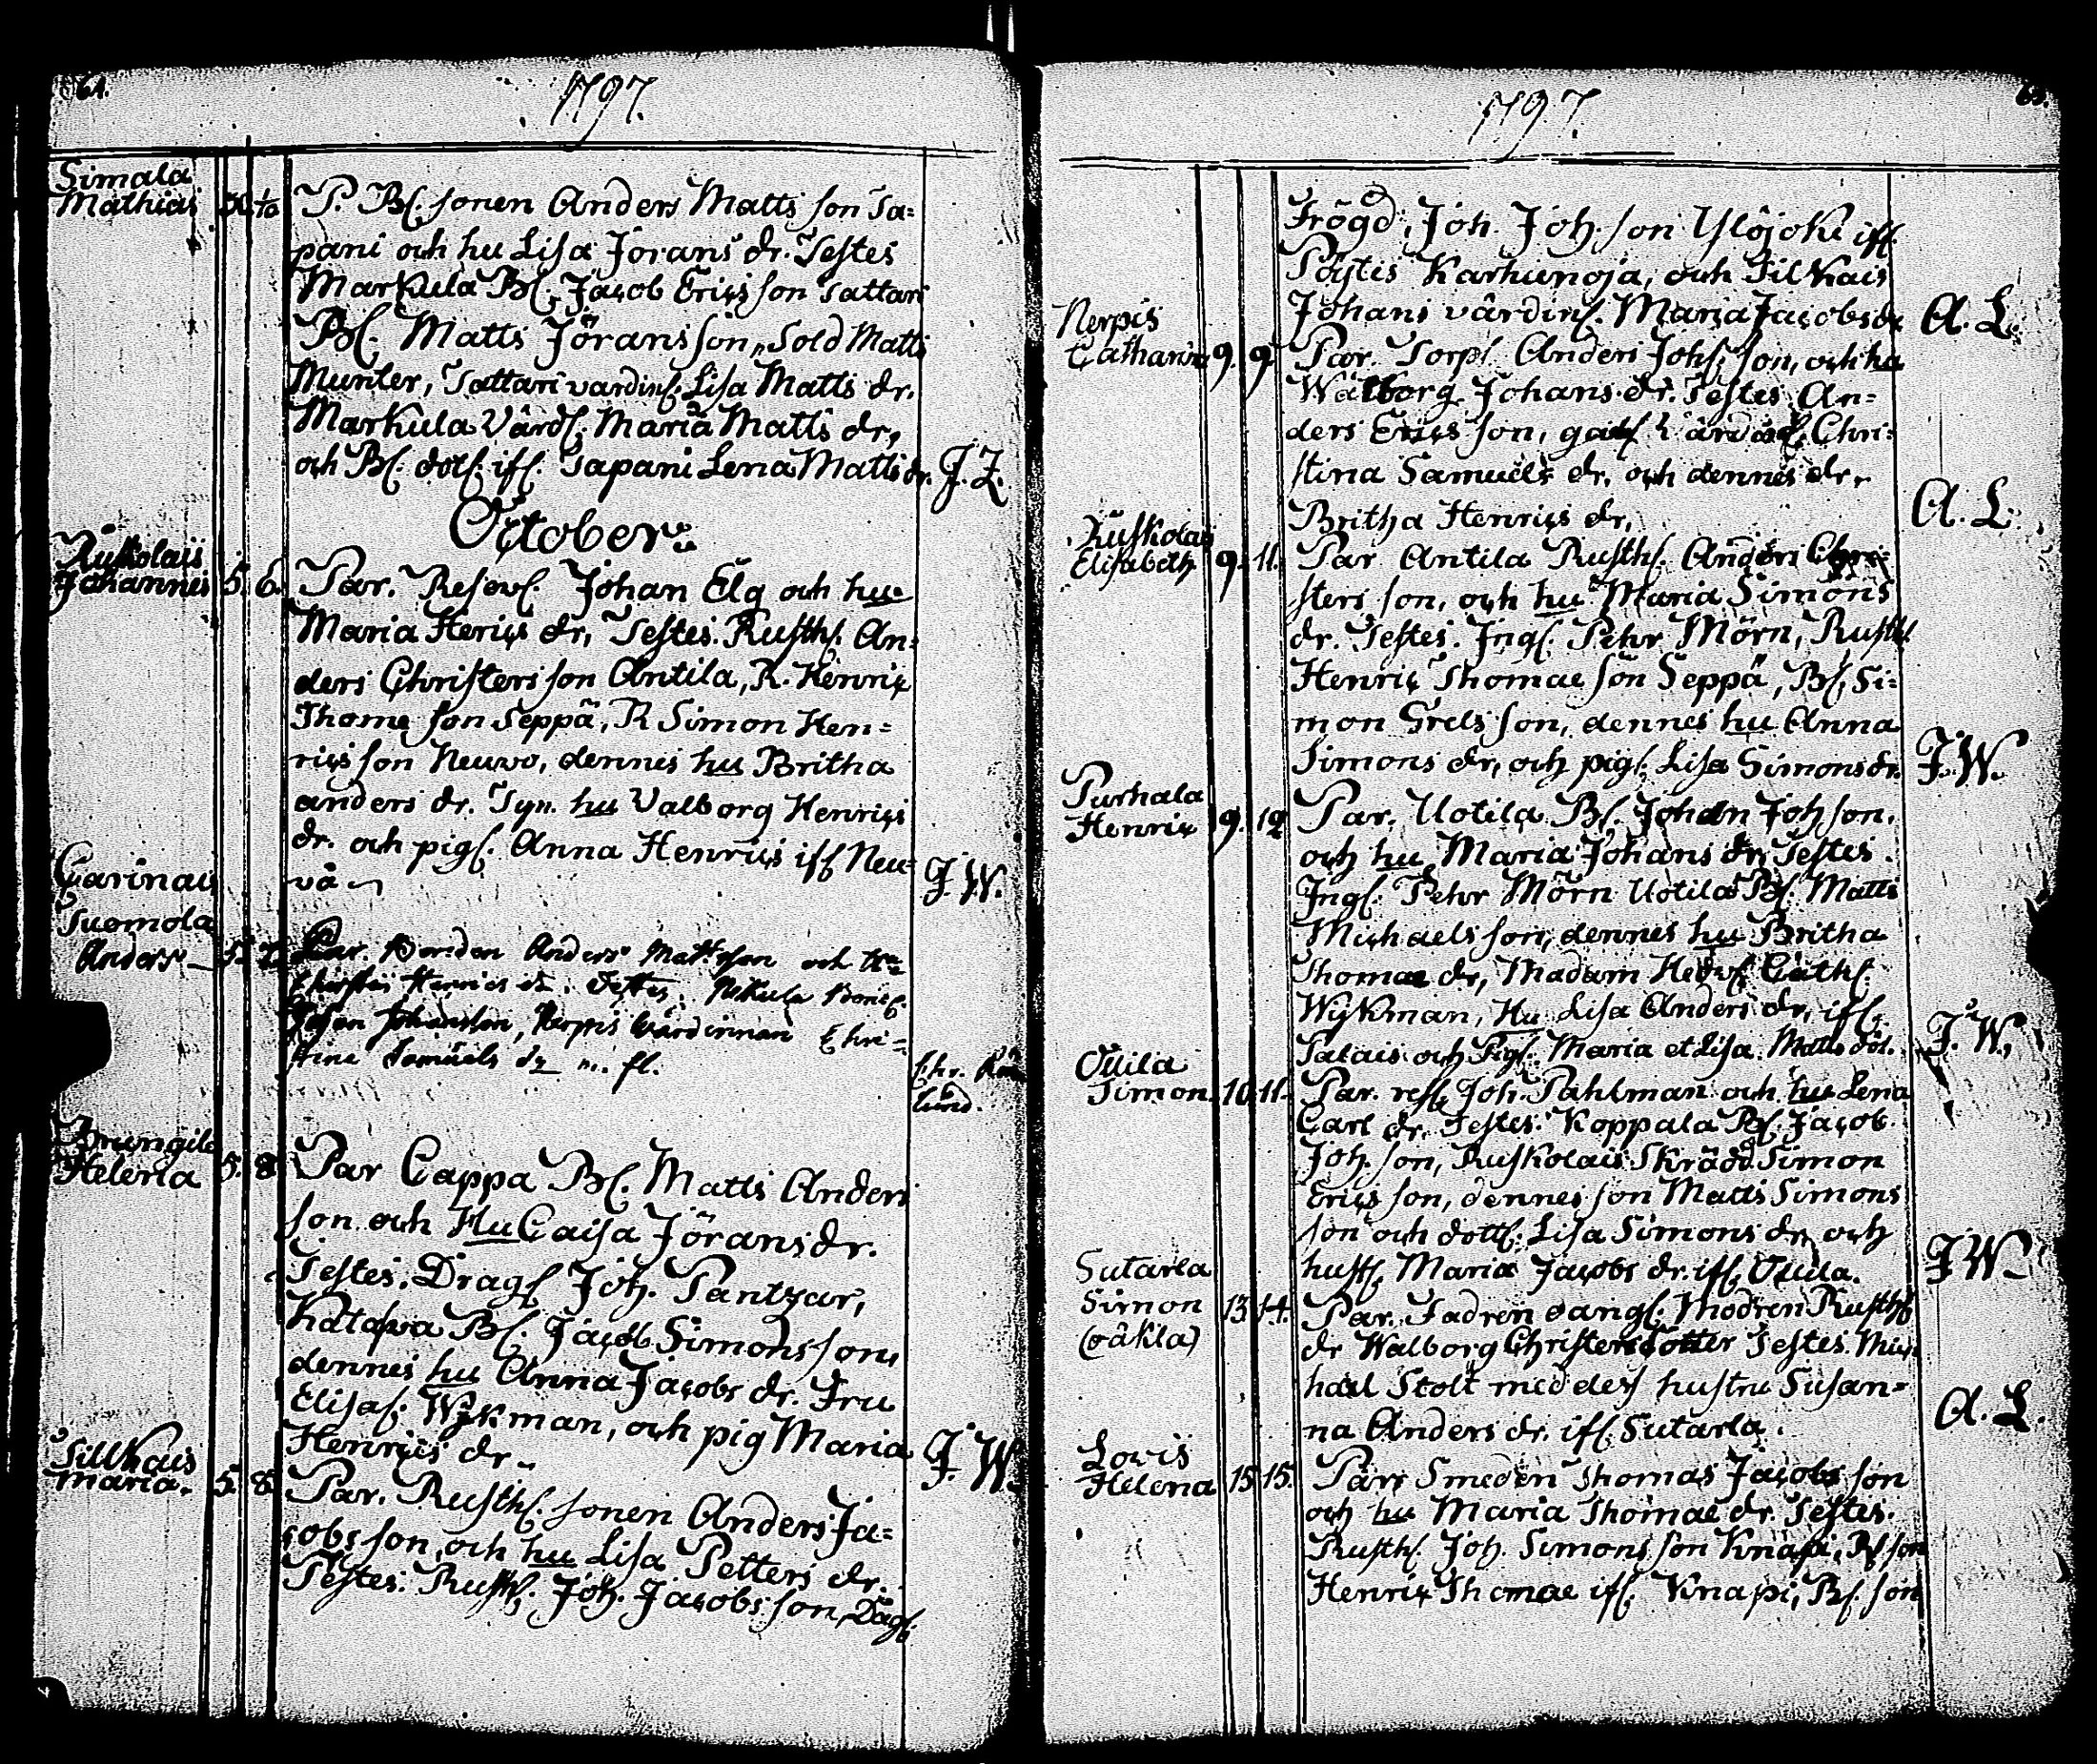 64.
1797.
Simala
Mathias 30. 1/10 P. Bs. sonen Anders Matts son Ta=
pani och hu Lisa Jörans dr. Testes
Markula Bs. Jacob Erics son Tattari
Bs. Matts Jörans son, Sold Matts
Munter, Tattari värdins. Lisa Matts dr.
Markula Värds. Maria Matts dr,
och Bs. dots. ifs. Tapani Lena Matts dr. J. L.
October
Ruskolais
Johannes 5. 6. Par. Reservs. Johan Elg och hu
Maria Herics dr, Testes. Rusths. An=
ders Christers son Antila, R. Henric
Thomæ son Seppä, R Simon Hen=
rics son Neuvo, dennes hu Britha
anders dr. Syn. hu Valborg Henrics
dr. och pigs. Anna Henrics ifs Neu=
vå J. W.
Carinais
Suomola
Anders 5. 7. Par. Bonden Anders Mattsson och hu
Kirstin Henrics dr. Testes. Mikula Bonds.
Johan Johansson, Nerpis Värdinnan Chri=
stina Samuels dr m. fl.
Chr.
lund.
Brungila
Helena 5. 8. Par Cappa Bs. Matts Anders
son och Hu Caisa Jörans dr.
Testes. Drags Joh. Pantzar,
Katawa Bs. Jacob Simons son,
dennes hu Anna Jacobs dr. Fru
Elisas. Wykman, och pig Maria
Henrics dr. J. W.
Sillkais
Maria. 5. 8. Par. Rusths. sonen Anders Ja=
cobs son, och hu Lisa Petters dr.
Testes. Rusths. Joh. Jacobs son, Dags.
65.
1797.
Frögd, Joh. Joh. son Yliojoki ifs.
Pöytis Karhunoja, och Silkais
Johans värdins. Maria Jacobs dr A. L.
Nerpis
Catharina 9. 9. Par. Torps. Anders Johs son, och hu
Walborg Johans dr. Testes An=
ders Erics son, Chri=
stina Samuels dr. och dennes dr.
Britha Henrics dr, A. L.
Ruskolais
Elisabeth 9. 11. Par Antila Rusths. Anders Chri=
sters son, och hu Maria Simons
dr. Testes. Ings. Pehr Mörn, Rusths.
Henric Thomae son Seppä, Bs. Si=
mon Grels son, dennes hu Anna
Simons dr, och pigs. Lisa Simons dr. J. W.
Purhala
Henric 9. 12 Par. Uotila Bs. Johan Joh son,
och hu Maria Johans dr, Testes.
Ings. Pehr Mörn Uotila Bs. Matts
Michaels son, dennes hu Britha
Thomae dr, Madam Hedvs. Caths.
Wykman, Hu Lisa Anders dr, ifs.
Palais och Pigs. Maria et Lisa Matts döt. J. W.
Ouila
Simon 10. 11. Par. ress. Joh. Pahlman och hu Lena
Carl dr. Testes. Koppala Bs. Jacob
Joh. son, Ruskolais Skrädd. Simon
Erics son, dennes son Matts Simons
son och dotts. Lisa Simons dr, och
husts, Maria Jacobs dr. ifs. Ouila. J W
Sutarla
Simon 13. 14. Par. Fadren oangs. Modren Rusths
(oäkta) dr Walborg Christers dotter Testes. Mic
hael Stolt med dess hustru Susan=
na Anders dr. ifs. Sutarla. A. L.
Lovis
Helena 15 15. Par. Smeden Thomas Jacobs son
och hu Maria Thomae dr. Testes.
Rusths. Joh. Simons son Knapi, Bs son
Henric Thomae ifs. Knapi, Bs. son